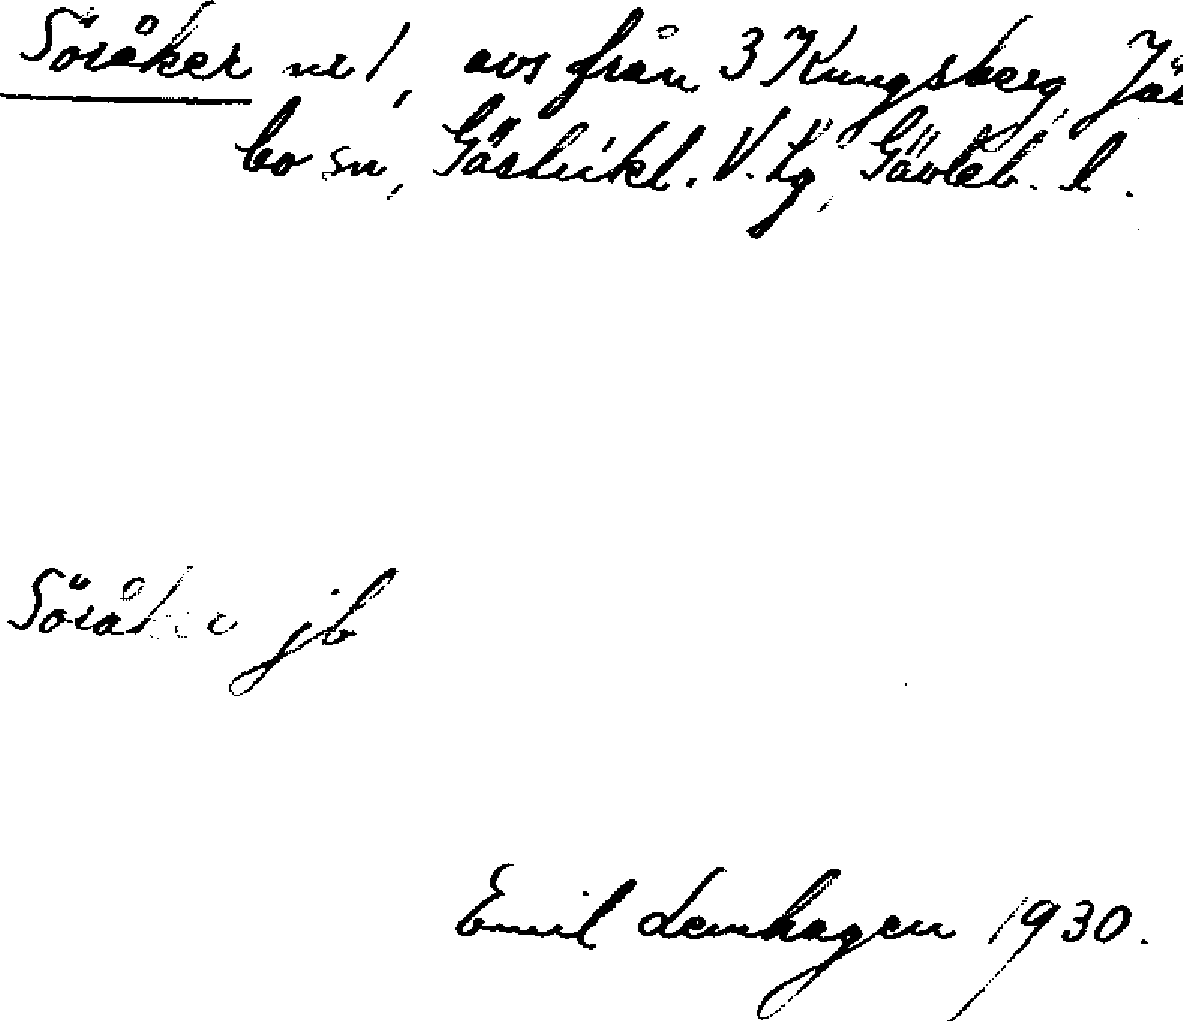 Söråker nr 1, avs från 3 Kungsberg, Jär
bo sn, Gästrikl. V. tg, Gävleb. l.
Söråker jb
Emil Lenhagen 1930.